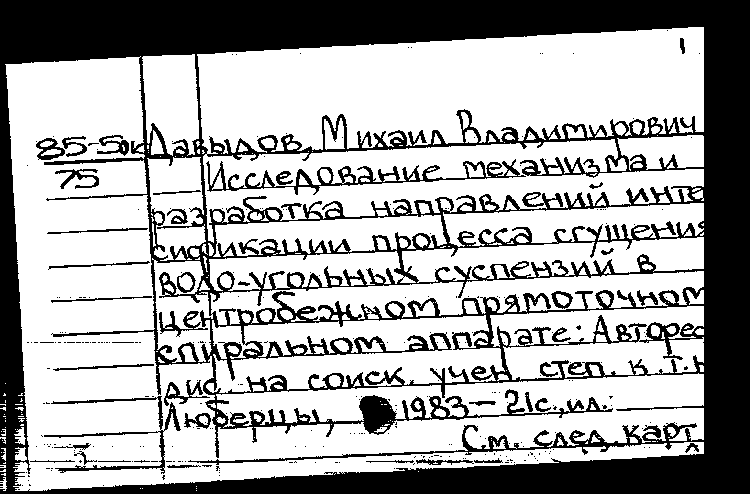 1
85-5ок Давыдов, Михаил Владимирович
75 Исследование механизма и
разработка направлений инте
сификации процесса сгущения
водо-угольных суспензий в
центробежном прямоточном
спиральном аппарате: Авторес
дис. на соиск. учен. степ. к.т.н
Люберцы, 1983 - 21с., ил.
См. след. карт